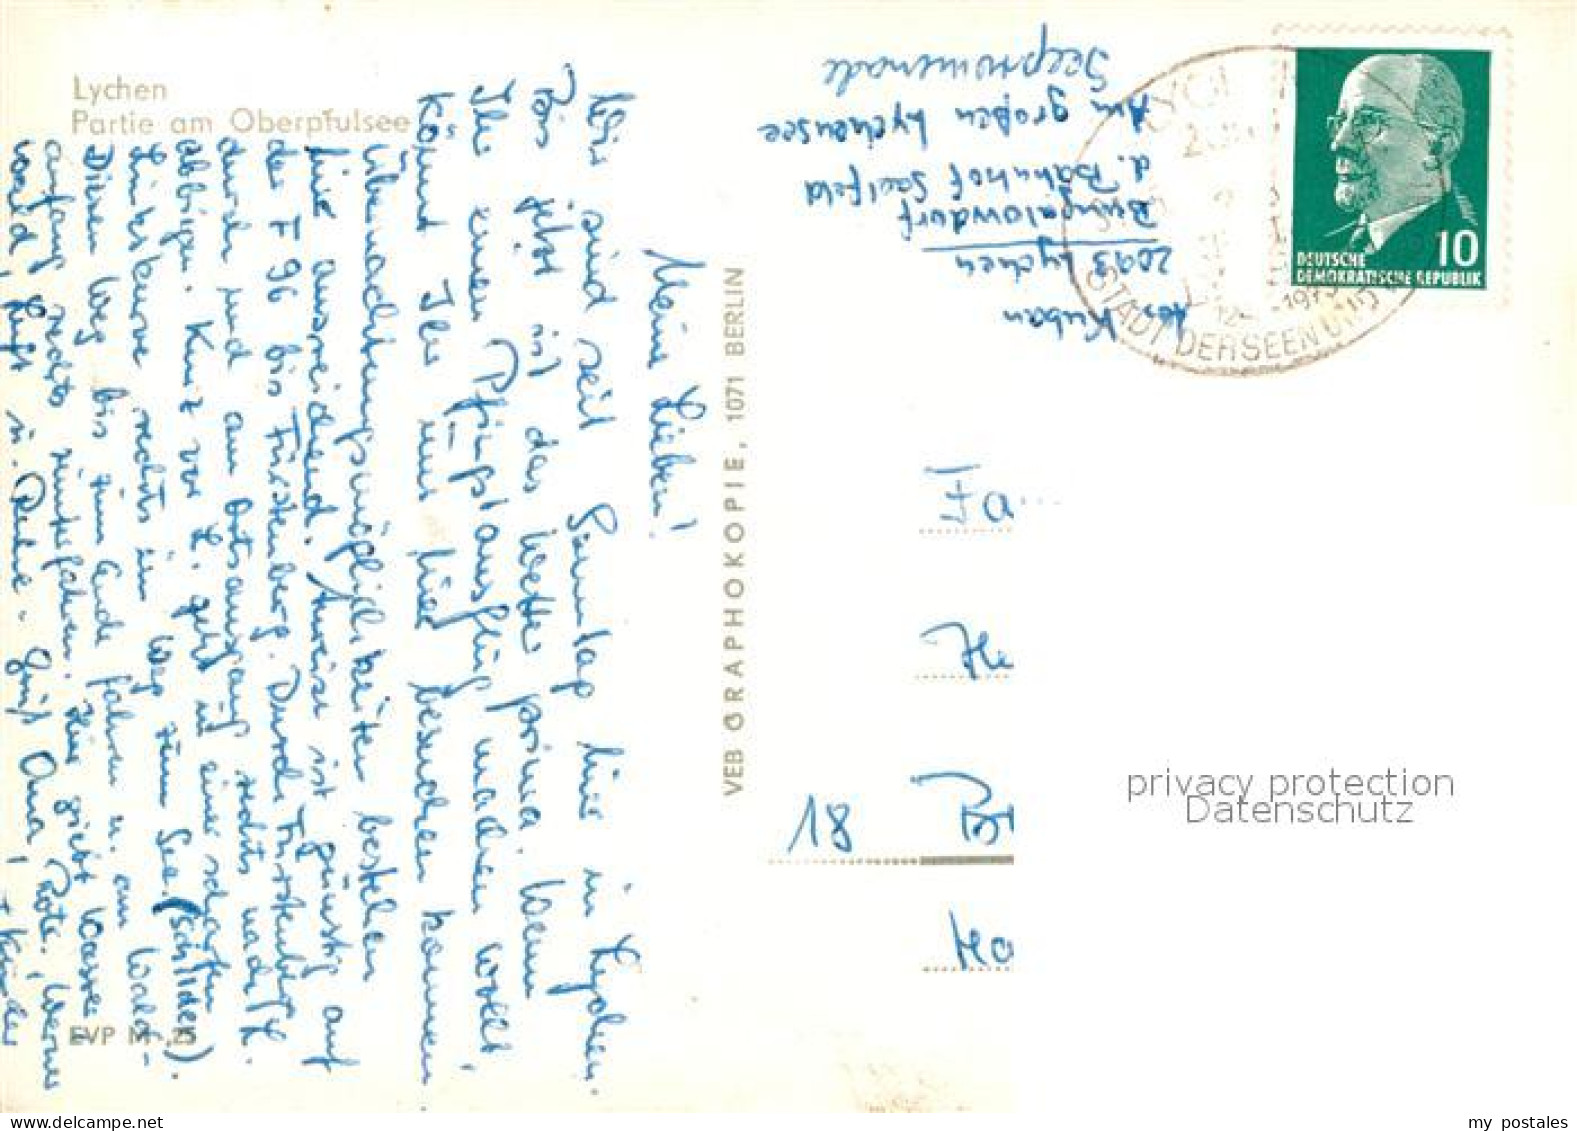 Lychen
Partie am Oberpfulsee
Meine Lieben!
Wir sind seit Sonntag hier in Lychen.
Bis jetzt ist das Wetter prima. Wenn
Ihr einen Pfingstausflug machen wollt,
könnt Ihr uns hier besuchen kommen
Übernachtungsmöglichkeiten bestehen
hier ausreichend. Anreise ist günstig auf
der F 96 bis Fürstenberg. Durch Fürstenberg
durch und am Ortsausgang rechts nach L.
abbiegen. Kurz vor L. geht in einer scharfen
Linkskurve rechts ein Weg zum See (Schilder).
Diesen Weg bis zum Ende fahren u. am Wald-
anfang rechts runterfahren. Hier giebt Wasser
Wald, Luft u. Ruhe. Gruß Ana, Rote, Werner
+ Kinder
EVP M -,25
VEB GRAPHOKOPIE, 1071 BERLIN
Abs. Kuban
2093 Lychen
Bungalowdorf
d. Bahnhof Saalfeld
Am großen Lychensee
Seepromenade
DEUTSCHE
DEMOKRATISCHE REPUBLIK
10
STADT DER SEEN UND
Fa
He
18
Ho
privacy protection
Datenschutz
my postales